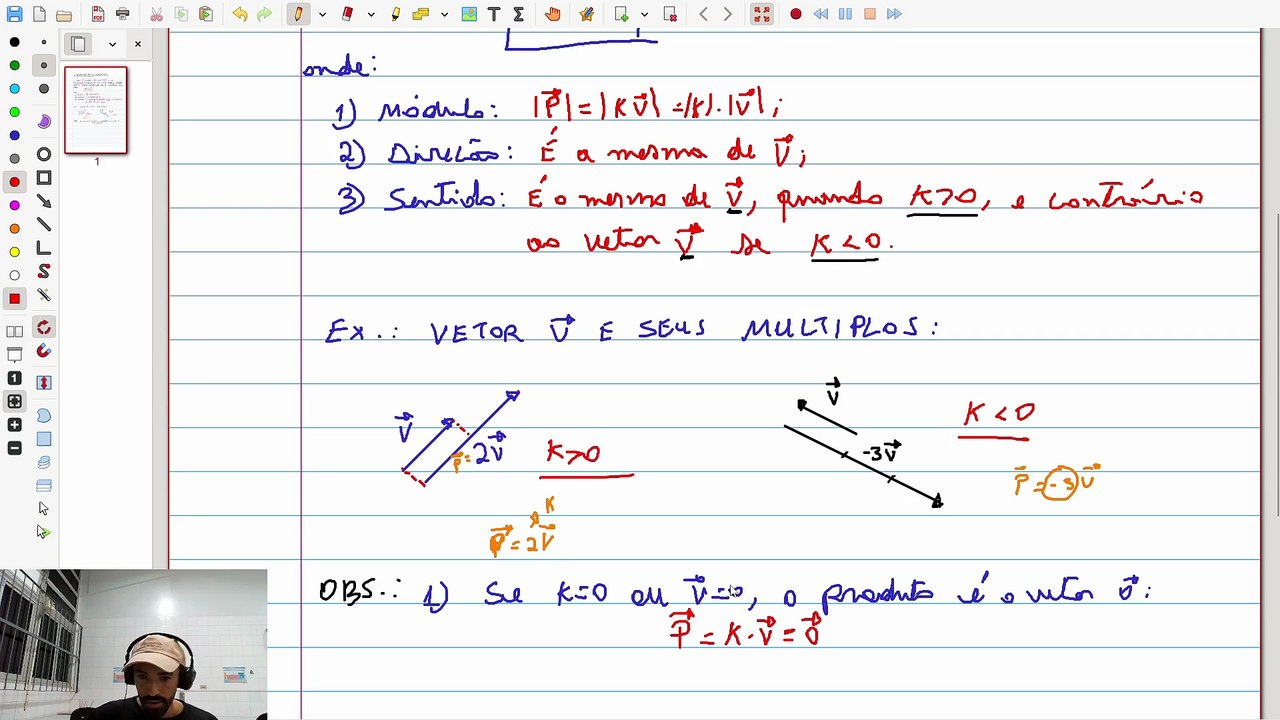 onde:
1) Módulo: |P⃗| = |K V⃗| = |K| · |V⃗|;
2) Direção: É a mesma de V⃗;
3) Sentido: É o mesmo de V⃗, quando K>0, e contrário
ao vetor V⃗ se K<0.
Ex.: VETOR V⃗ E SEUS MULTIPLOS:
V⃗
P⃗= 2V⃗
K>0
K
P⃗ = 2V⃗
V⃗
-3V⃗
K<0
P⃗ = -3V⃗
OBS.: 1) Se K=0 ou V⃗=0, o produto é o vetor 0⃗:
P⃗ = K·V⃗ = 0⃗
1